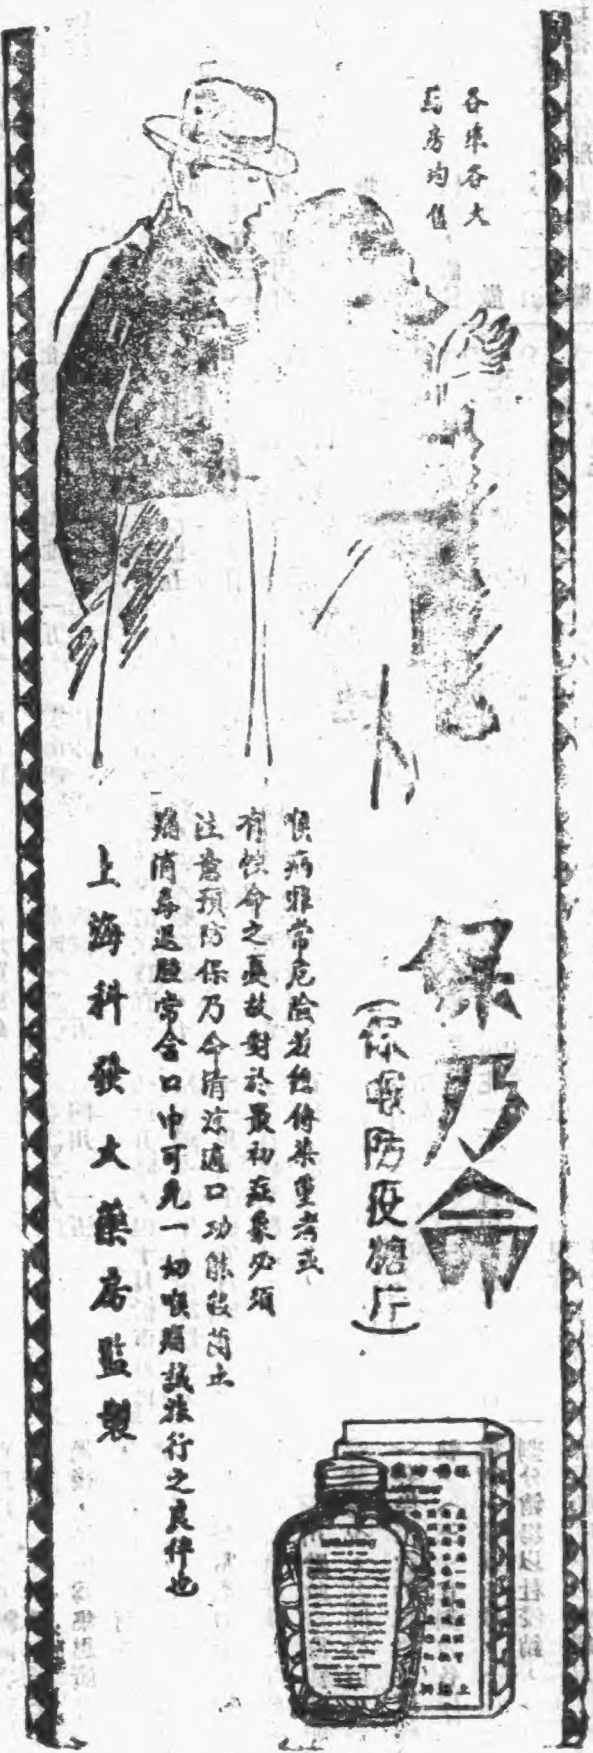 各埠各大
藥房均售
保乃命
(保喉防疫糖片)
喉病非常危險若經傳染重者或
有性命之憂故對於最初症象必須
注意預防保乃命清涼適口功能殺菌止
痛消毒退腫常含口中可免一切喉痛誠旅行之良伴也
上海科發大藥房監製